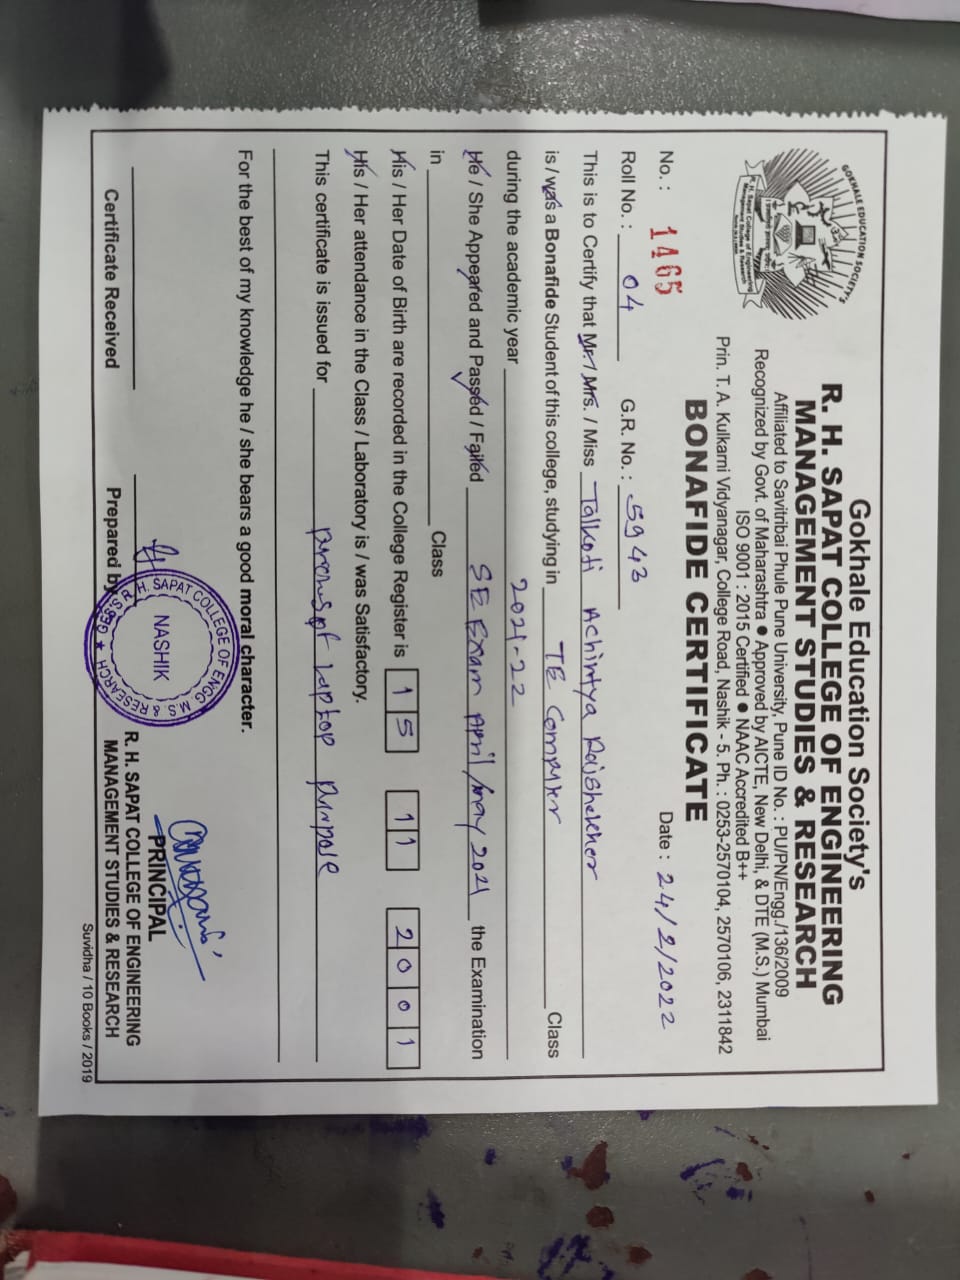 GOKHALE EDUCATION SOCIETY'S
R. H. Sapat College of Engineering
Management Studies & Research
Gokhale Education Society's
R. H. SAPAT COLLEGE OF ENGINEERING
MANAGEMENT STUDIES & RESEARCH
Affiliated to Savitribai Phule Pune University, Pune ID No. : PU/PN/Engg./136/2009
Recognized by Govt. of Maharashtra ● Approved by AICTE, New Delhi, & DTE (M.S.) Mumbai
ISO 9001 : 2015 Certified ● NAAC Accredited B++
Prin. T. A. Kulkarni Vidyanagar, College Road, Nashik - 5. Ph. : 0253-2570104, 2570106, 2311842
BONAFIDE CERTIFICATE
No. : 1465 Date : 24/2/2022
Roll No. : 04 G.R. No. : 5943
This is to Certify that Mr. / Mrs. / Miss Talkoti Achintya Rajshekher
is / was a Bonafide Student of this college, studying in TE Computer Class
during the academic year 2021-22
He / She Appeared and Passed / Failed SE Exam April/may 2021 the Examination
in Class
His / Her Date of Birth are recorded in the College Register is 15 11 2001
His / Her attendance in the Class / Laboratory is / was Satisfactory.
This certificate is issued for Laptop purpose
For the best of my knowledge he / she bears a good moral character.
G.E.S'S R. H. SAPAT COLLEGE OF ENGG. M.S. & RESEARCH ★
NASHIK
Certificate Received Prepared by PRINCIPAL
R. H. SAPAT COLLEGE OF ENGINEERING
MANAGEMENT STUDIES & RESEARCH
Suvidha / 10 Books / 2019